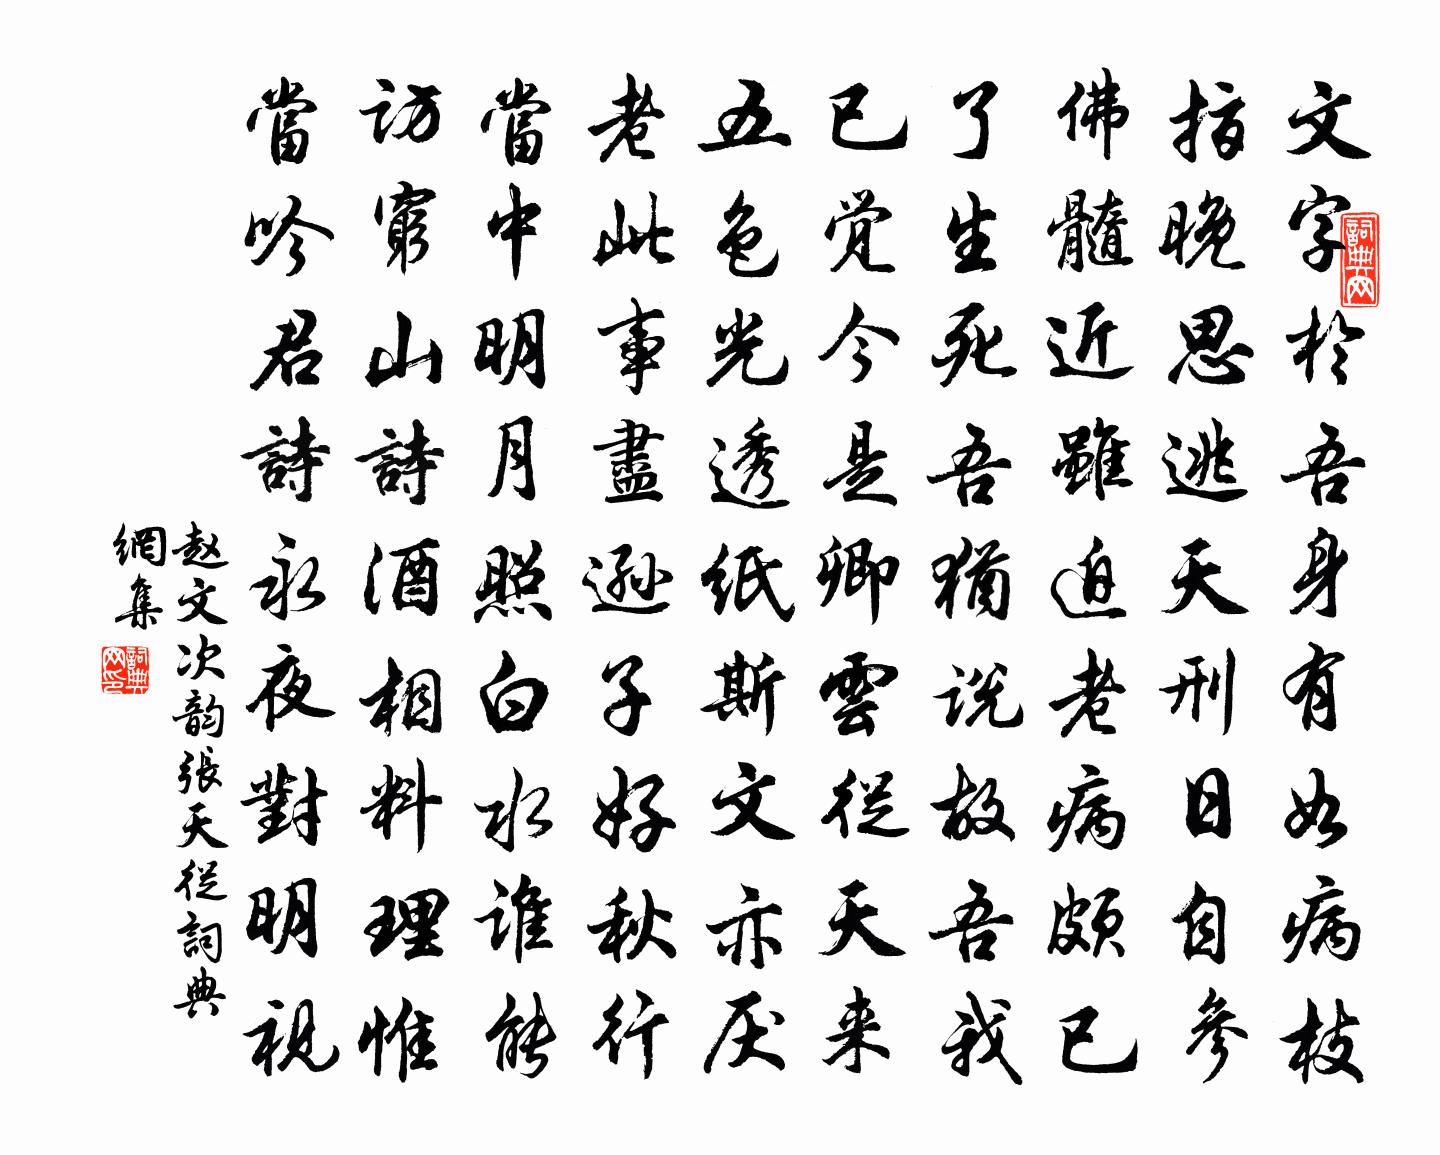 文字於吾身有如病枝
指晚思逃天刑日自參
佛髓近雖迫老病頗已
了生死吾猶说故吾我
已觉今是卿雲從天来
五色光透紙斯文亦厌
老此事盡遜子好秋行
當中明月照白水谁能
访窮山詩酒相料理惟
當吟君詩永夜對明視
赵文次韵張天從詞典
網集
詞典网
詞典网印